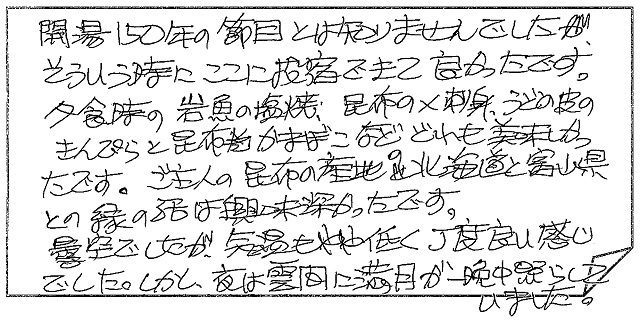 開場150年の節目とは知りませんでしたが、
そういう時にここに投宿できて良かったです。
夕食時の岩魚の塩焼、昆布〆刺身、うどの皮の
きんぴらと昆布巻かまぼこなどどれも美味しかっ
たです。ご主人の昆布の産地の北海道と富山県
との縁の話は興味深かったです。
曇空でしたが、気温もやや低く丁度良い感じ
でした。しかし、夜は雲間に満月が一晩中照らして
いました。